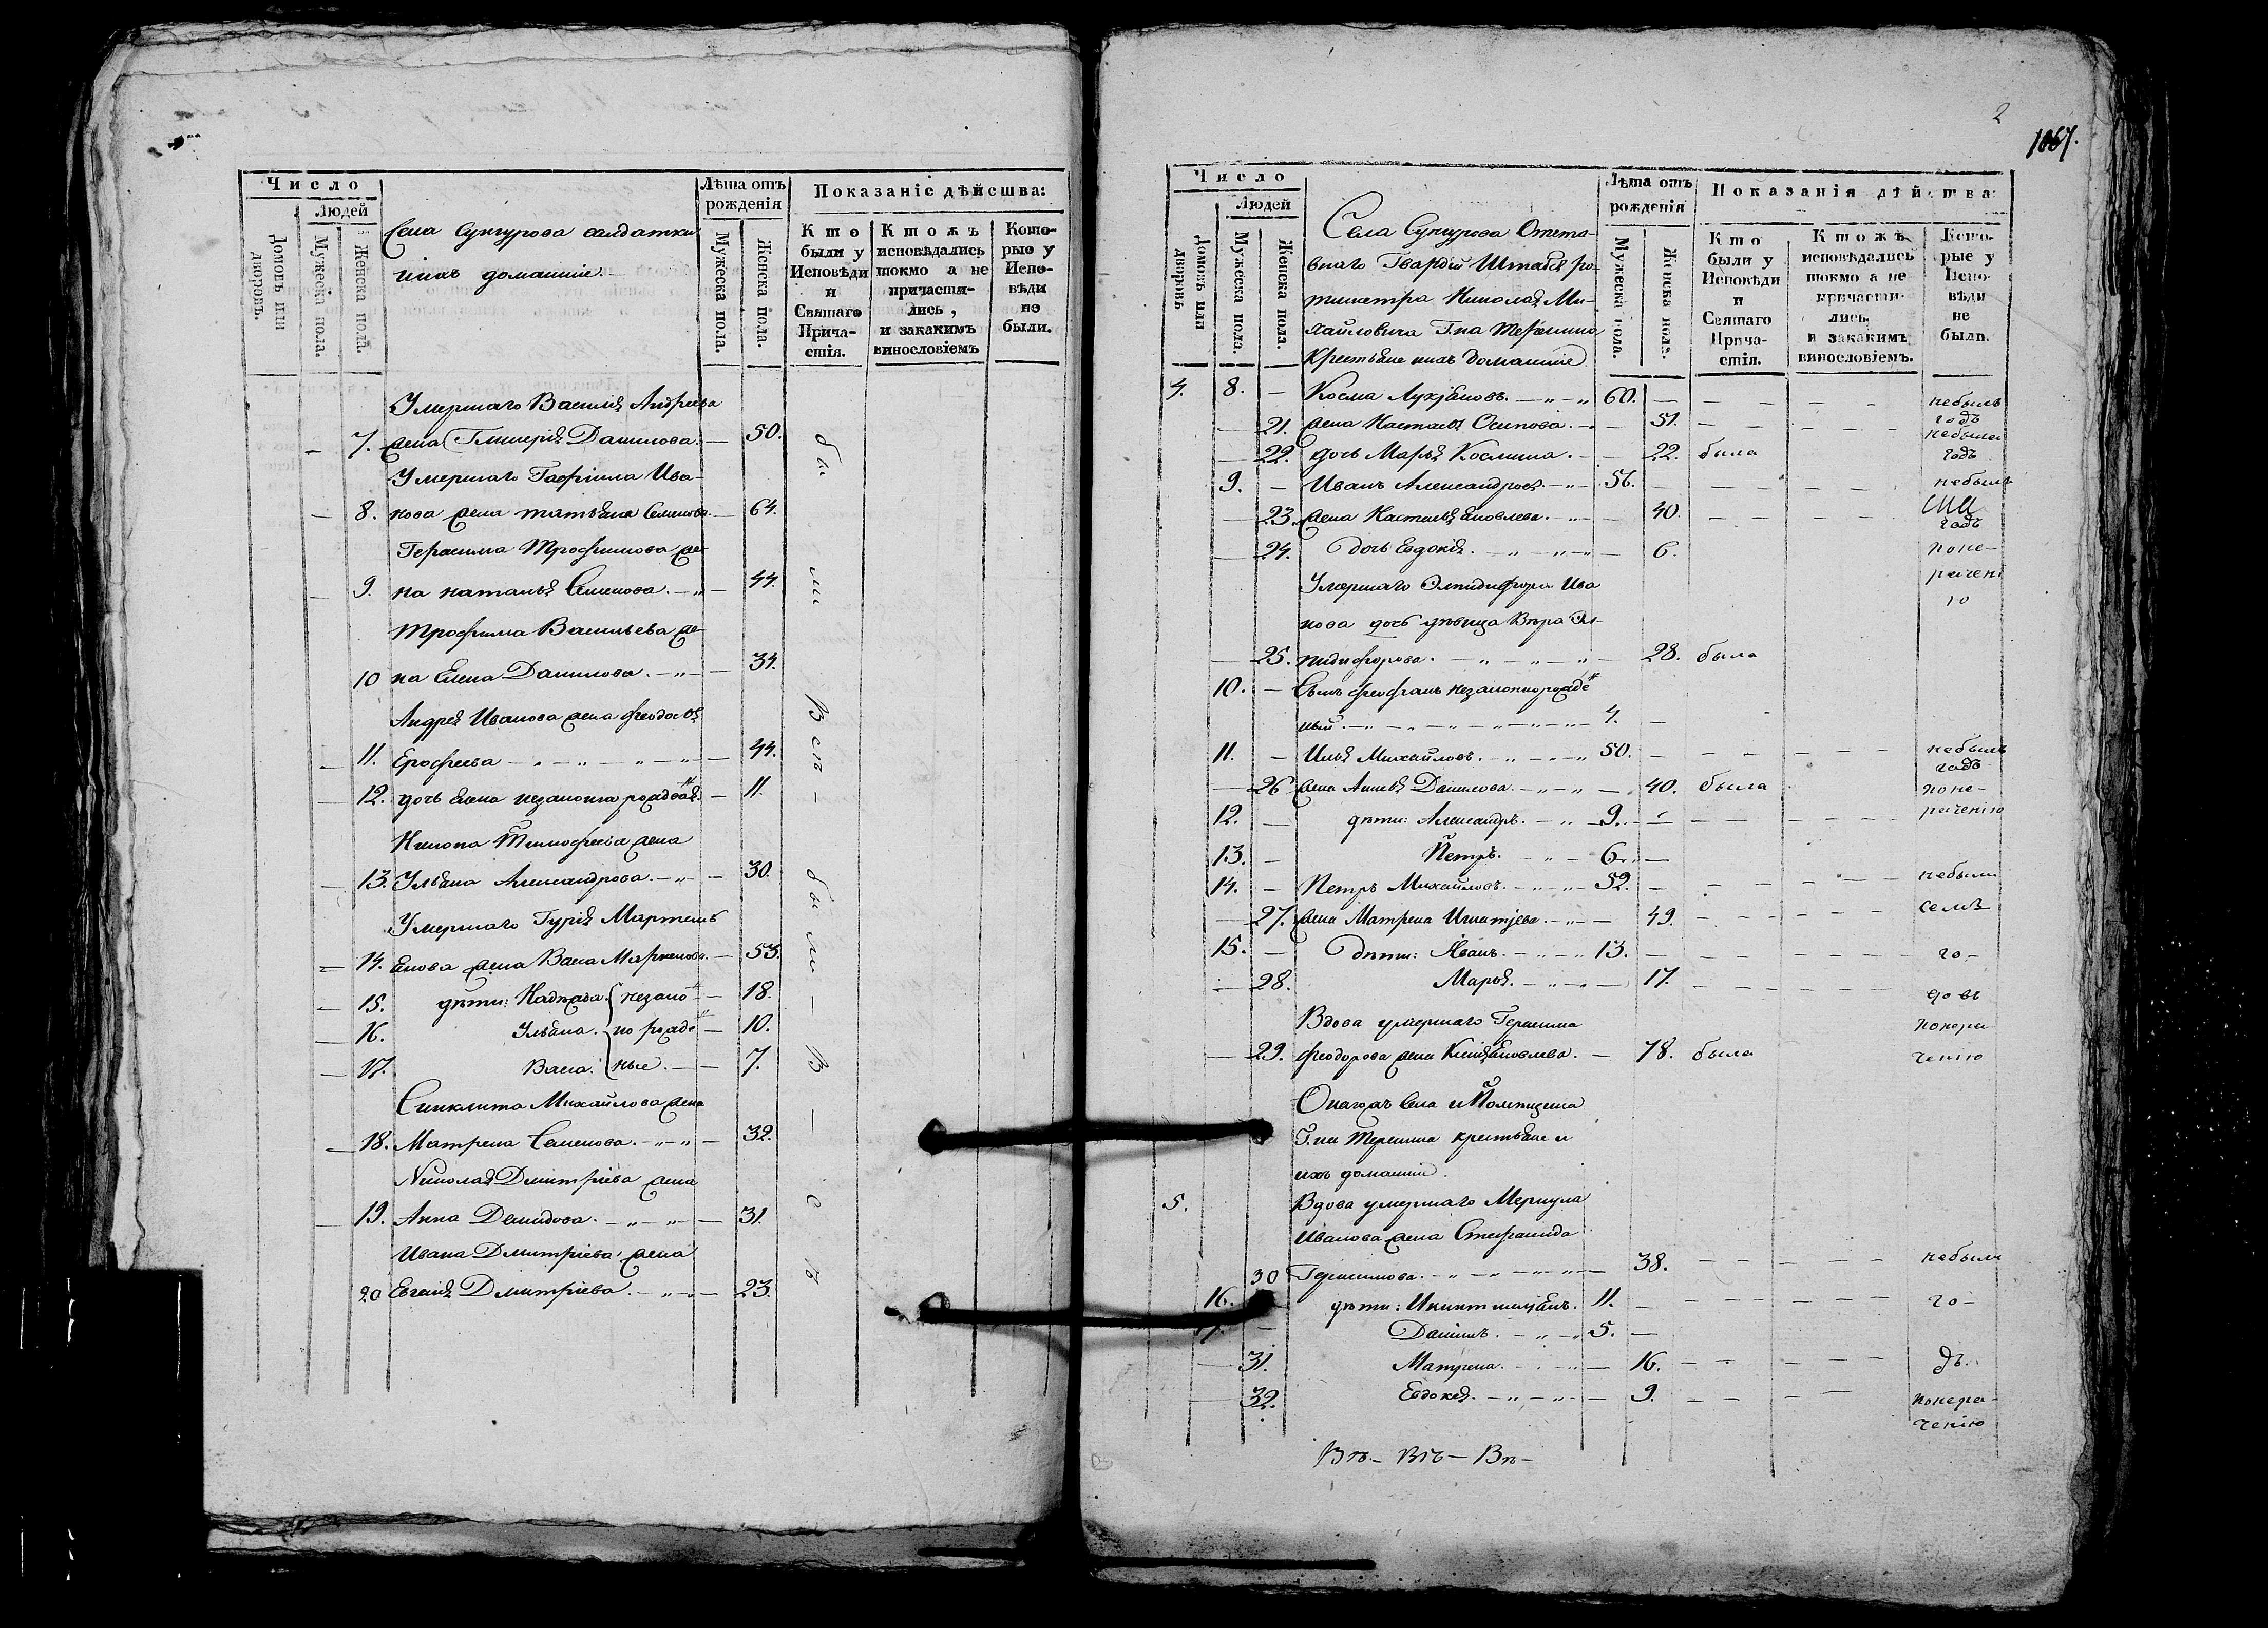 Число
Людей
Домовъ или дворовъ.
Мужеска пола.
Женска пола.
Села Сунгурова салдатки
ихъ домашніе.
Лѣта отъ рожденія
Мужеска пола.
Женска пола.
Показаніе дѣйства:
Кто были у Исповѣди и Святаго Причастія.
Ктожъ исповѣдались токмо а не причастились, и закакимъ винословіемъ
Которые у Исповѣди не были.
Умершаго Василія Андреева
— 7. жена Гликерія Данилова. — 50.
Умершаго Гаврiила Ива-
— 8. нова жена татьяна Семенова. — 64.
Герасима Трофимова же-
— 9. на наталья Семенова. — 44.
Трофима Васильева же-
10 на Елена Данилова. — 34.
Андрея Иванова жена феодосья
— 11. Ерофеева — 44.
— 12. дочь Елена незаконна рожденая. — 11.
Тимофеева жена
— 13. Ульяна Александрова. — 30.
Умершаго Гурія Мартемь
— 14. янова жена Васа Маркелова. — 53.
— 15. дѣти: Надежда. незако — 18.
— 16. Ульяна. но рожде — 10.
— 17. Васа. ные. — 7.
Синклита Михайлова жена
— 18. Матрена Семенова. — 32.
Николая Дмитріева жена
— 19. Анна Демидова. — 31.
Ивана Дмитріева жена
20 Евгенія Дмитріева. — 23.
бы ли Всѣ — были — В — с ѣ
2
1067.
Число
Людей
Домовъ или дворовъ
Мужеска пола.
Женска пола.
Села Сунгурова Отста-
внаго Гвардіи Штабсъ ро-
тмистра Николая Ми-
хайловича Г.на Терешина
Крестьяне ихъ домашніе
Лѣта отъ рожденія
Мужеска пола.
Женска пола.
Показанія дѣйства
Кто были у Исповѣди и Святаго Причастія.
Ктожъ исповѣдались токмо а не причастились, и закакимъ винословіемъ.
Которые у Исповѣди не были.
4. 8. — Косма Лукьяновъ. — 60. — небылъ годъ
— 21. жена Настасья Осипова. — 51. — небыла годъ
— 22. дочь Марья Космина. — 22. была
9. — Иванъ Александровъ. — 56. — небыли
— 23. жена Настасья Яковлева. — 40. — годъ
— 24. Дочь Евдокія. — 6. поне-
рачені
ю
Умершаго Эпидифора Ива
нова дочь дѣвица Вѣра Эл-
— 25. пидифорова. — 28. была
10. — Ево феофанъ незаконнорожде
ный. — 4. —
11. — Илья Михайловъ. — 50. — небылъ годъ
— 26 жена Анисья Данилова. — 40. была поне-
рачению
12. — дѣти: Александръ. — 9. —
13. — Петръ. — 6. —
14. — Петръ Михайловъ. — 52. — небыли
— 27. жена Матрена Игнатьева. — 49. — семь
15. — Дѣти: Иванъ. — 13. — го-
— 28. Марья. — 17. — довъ
Вдова умершаго Герасима понера
— 29. феодорова жена Яковлева. — 78. была чению
Онагожъ Села и Помѣщика
Г.на Терешина крестьяне и
ихъ домашнии.
5. Вдова умершаго Меркула
Иванова жена Стефанида
30 Герасимова. — 38. — небыли
16. дѣти: 11. — го-
17. — Данилъ. — 5. —
— 31. Матрена. — 16. — дъ.
— 32. Евдокея. — 9. — понера-
чению
Вѣ — Вѣ — Вѣ —